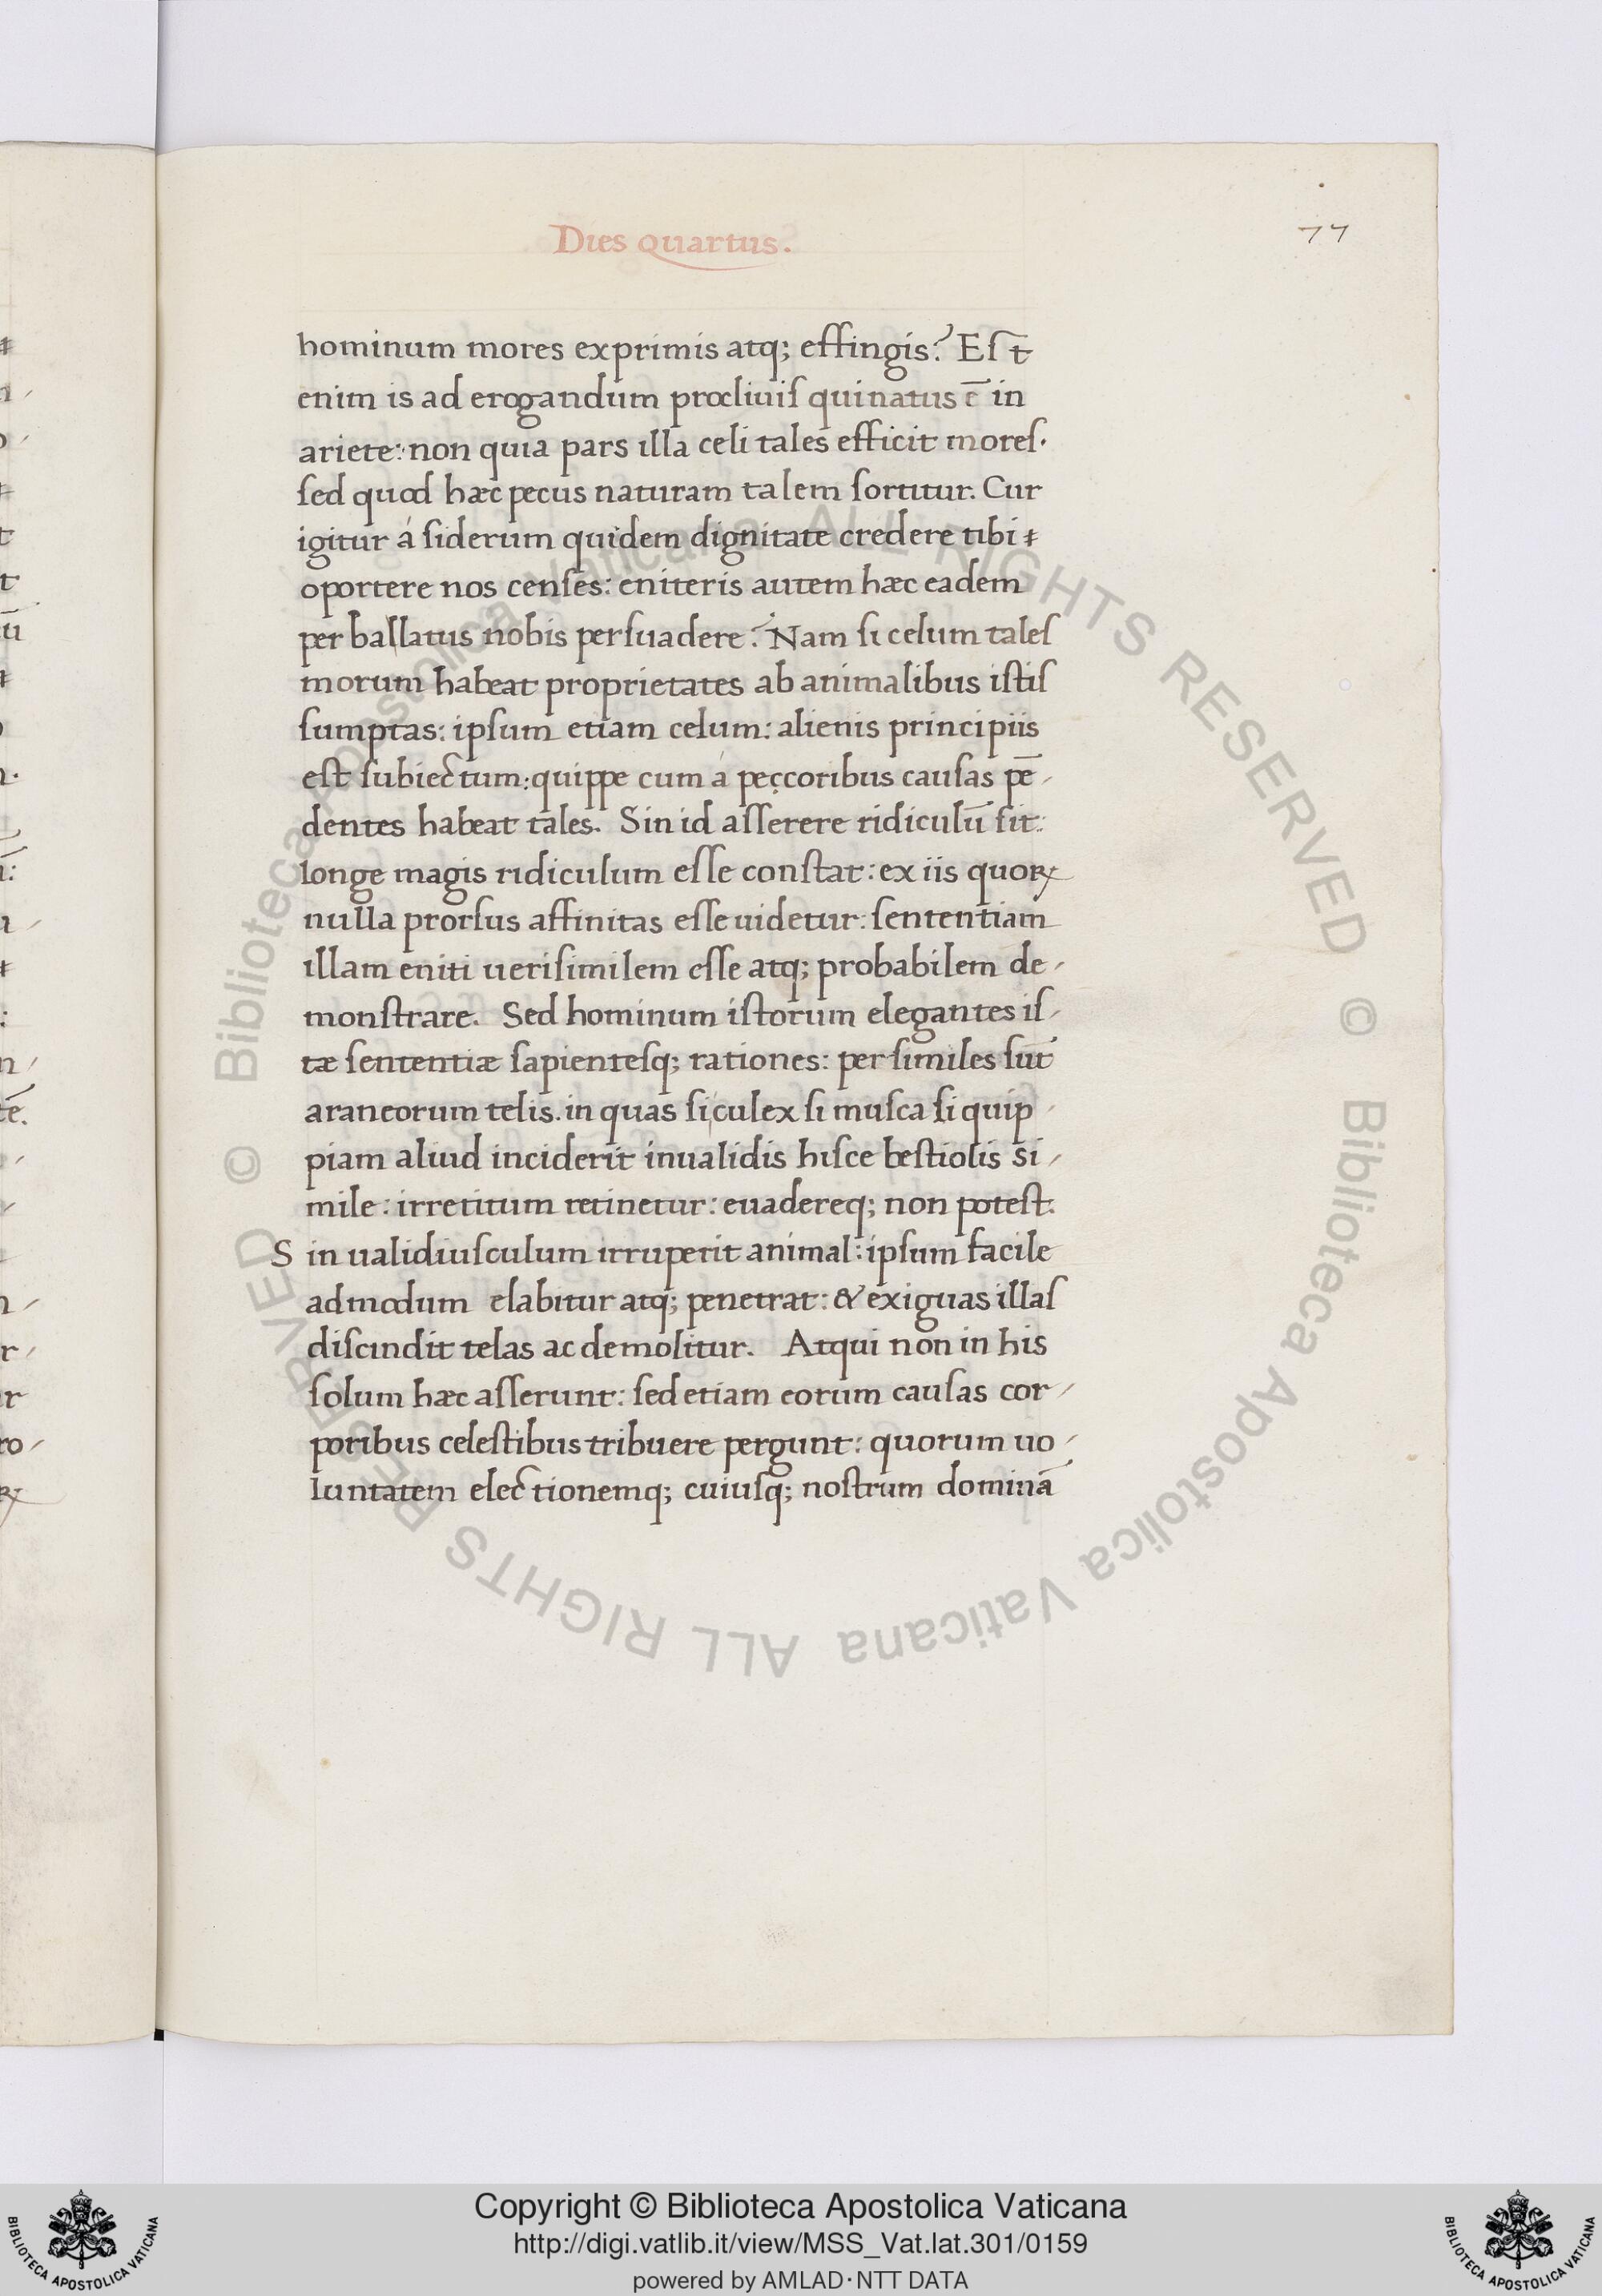 Dies quartus.
77
hominum mores exprimis atq; effingis? Eſt̄
enim is ad erogandum procliuiſ qui natus ē in
ariete: non quia pars illa celi tales efficit moreſ.
ſed quod hæc pecus naturam talem ſortitur. Cur
igitur á ſiderum quidem dignitate credere tibi
oportere nos cenſes: eniteris autem hæc eadem
per ballatus nobis perſuadere? Nam ſi celum taleſ
morum habeat proprietates ab animalibus iſtiſ
ſumptas: ipſum etiam celum: alienis principiis
eſt ſubiectum: quippe cum á peccoribus cauſas pē
dentes habeat tales. Sin id aſſerere ridiculū ſit:
longe magis ridiculum eſſe conſtat: ex iis quoꝝ
nulla prorſus affinitas eſſe uidetur: ſententiam
illam eniti ueriſimilem eſſe atq; probabilem de
monſtrare. Sed hominum iſtorum elegantes iſ
tæ ſententiæ ſapienteſq; rationes: per ſimiles ſūt
araneorum telis. in quas ſi culex ſi muſca ſi quip
piam aliud inciderit inualidis hiſce beſtiolis si
mile: irretitum retinetur: euadereq; non poteſt.
S in ualidiuſculum irruperit animal: ipſum facile
admodum elabitur atq; penetrat: & exiguas illaſ
diſcindit telas ac demolitur. Atqui non in his
ſolum hæc aſſerunt: ſed etiam eorum cauſas cor
poribus celeſtibus tribuere pergunt: quorum uo
luntatem electionemq; cuiuſq; noſtrum dominā
© Biblioteca Apostolica Vaticana ALL RIGHTS RESERVED © Biblioteca Apostolica Vaticana ALL RIGHTS RESERVED
Copyright © Biblioteca Apostolica Vaticana
http://digi.vatlib.it/view/MSS_Vat.lat.301/0159
powered by AMLAD·NTT DATA
BIBLIOTECA APOSTOLICA VATICANA
BIBLIOTECA APOSTOLICA VATICANA